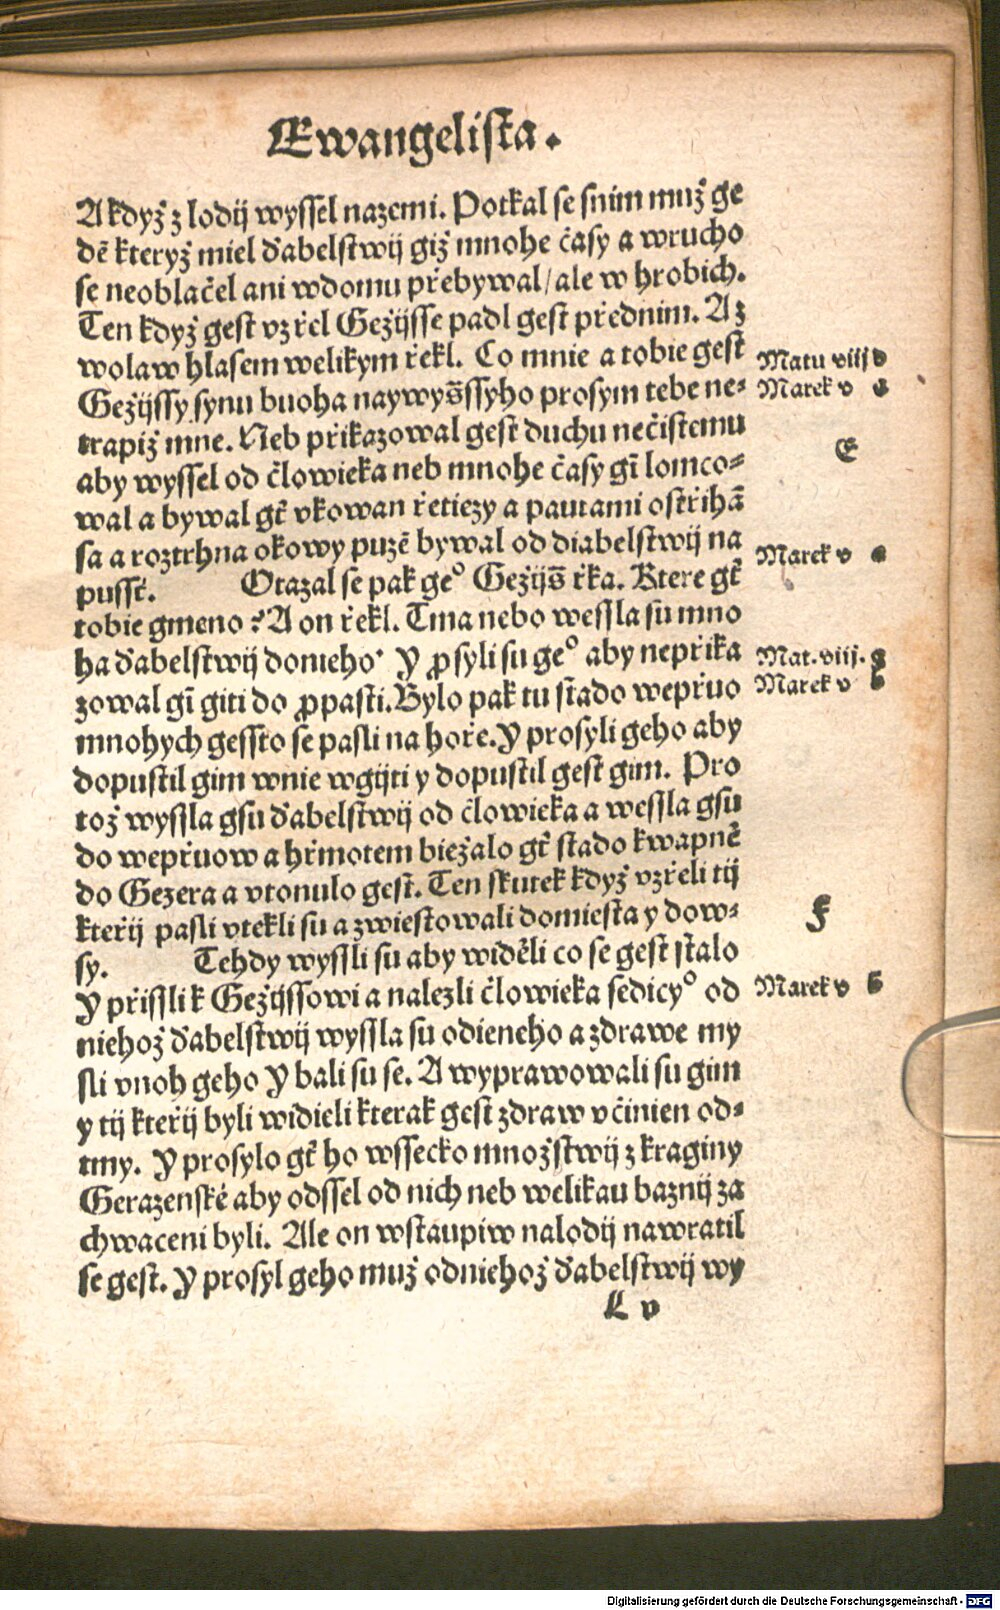 Ewangelista.
A kdyż z lodij wyssel nazemi. Potkal se snim muż ge
dē kteryż miel ďabelstwij giż mnohe časy a wrucho
se neoblačel ani wdomu přebywal/ale w hrobich.
Ten kdyż gest vzřel Geżijsse padl gest přednim. A z
wolaw hlasem welikym řekl. Co mnie a tobie gest
Matu viij d
Geżijssy synu buoha naywys̄ssyho prosym tebe ne⸗
Marek v a
trapiż mne. Neb přikazowal gest duchu nečistemu
E
aby wyssel od člowieka neb mnohe časy gī lomco⸗
wal a bywal gt̄ vkowan řetiezy a pautami ostřihā
sa a roztrhna okowy puzē bywal od diabelstwij na
Marek v a
pussť. Otazal se pak ge° Geżijs̄ řka. Ktere gt̄
tobie gmeno? A on řekl. Tma nebo wessla su mno
ha ďabelstwij donieho· Y ꝓsyli su ge° aby nepřika
Mat. viij. g
zowal gī giti do ꝓpasti. Bylo pak tu stado wepřuo
Marek v b
mnohych gessto se pasli na hoře. Y prosyli geho aby
dopustil gim wnie wgijti y dopustil gest gim. Pro
toż wyssla gsu ďabelstwij od člowieka a wessla gsu
do wepřuow a hřmotem bieżalo gt̄ stado kwapnē
do Gezera a vtonulo gest. Ten skutek kdyż vzřeli tij
kteřij pasli vtekli su a zwiestowali domiesta y dow⸗
F
sy. Tehdy wyssli su aby widēli co se gest stalo
Y přissli k Geżijssowi a nalezli člowieka sedicy° od
Marek v b
niehoż ďabelstwij wyssla su odieneho a zdrawe my
sli vnoh geho Y bali su se. A wyprawowali su gim
y tij kteřij byli widieli kterak gest zdraw včinien od⸗
tmy. Y prosylo gt̄ ho wssecko mnożstwij z kraginy
Gerazenské aby odssel od nich neb welikau baznij za
chwaceni byli. Ale on wstaupiw nalodij nawratil
se gest. Y prosyl geho muż odniehoż ďabelstwij wy
L v
Digitalisierung gefördert durch die Deutsche Forschungsgemeinschaft - DFG